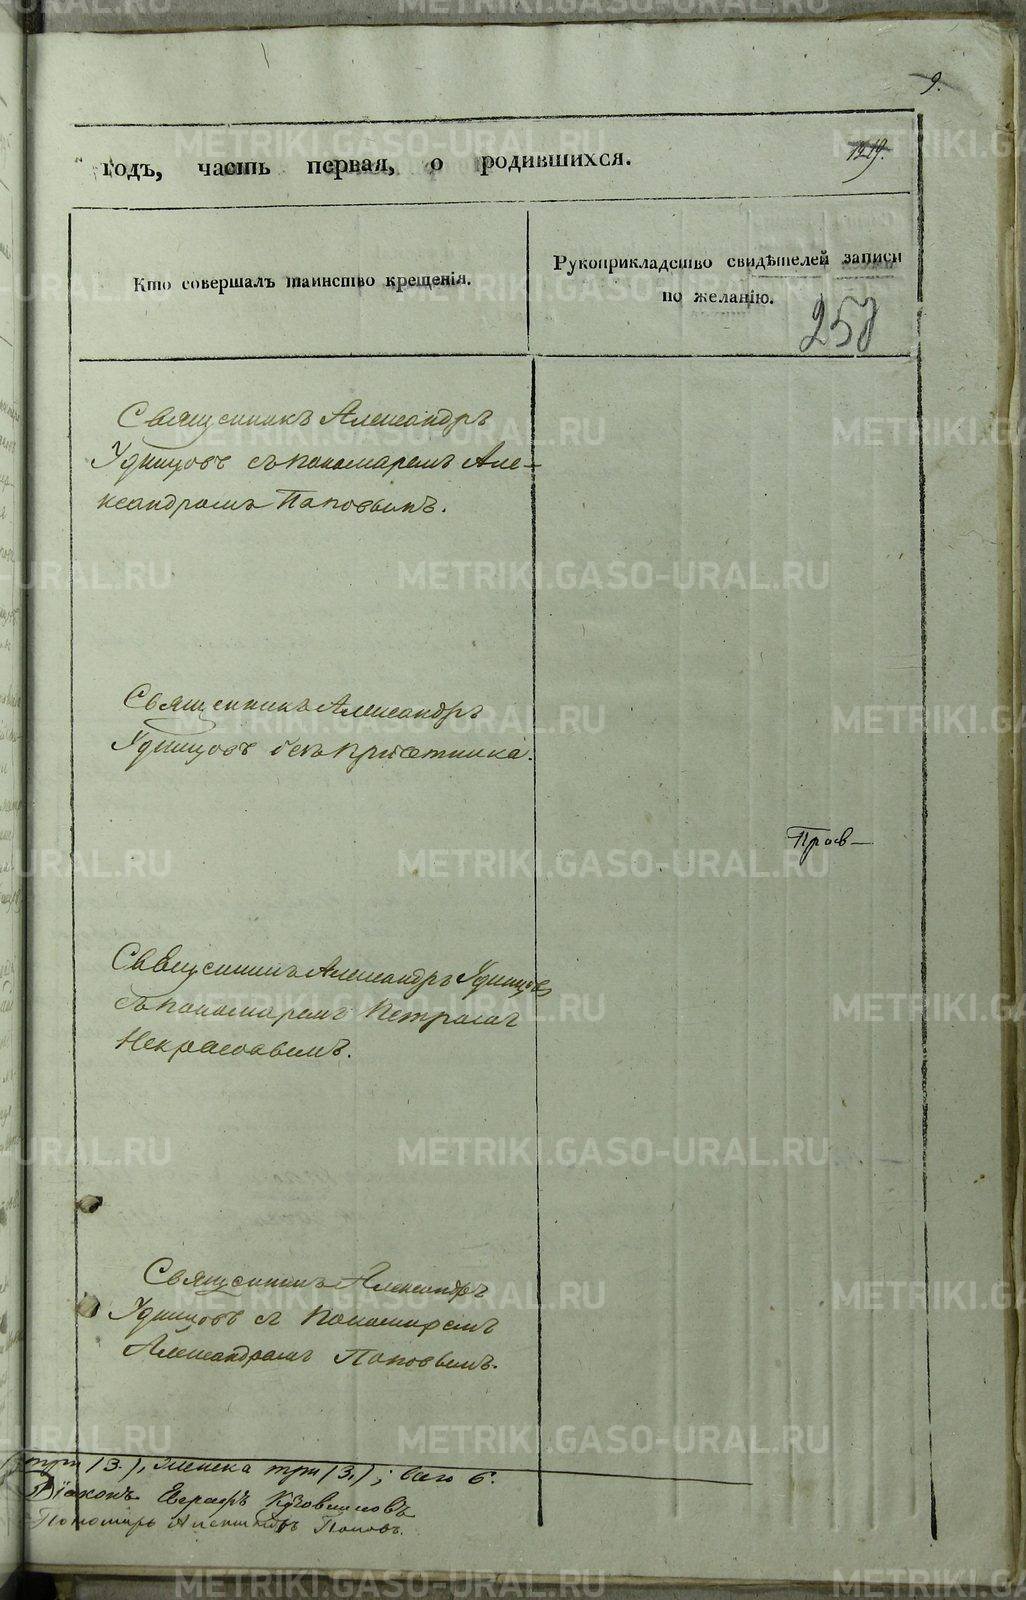 9.
1219.
годъ, часть первая, о родившихся.
Кто совершалъ таинство крещенія.
Рукоприкладство свидѣтелей записи
по желанію.
258
Священникъ Александръ
Удинцовъ съ пономаремъ Але-
ксандромъ Поповымъ.
Священникъ Александръ
Удинцовъ безъ причетника.
Пров
Священникъ Александръ Удинцовъ
съ пономаремъ Петромъ
Некрасовымъ.
Священникъ Александръ
Удинцовъ съ Пономаремъ
Александромъ Поповымъ.
три /3./, женска три /3./; всего 6.
Діаконъ Евграфъ
Пономарь Александръ Поповъ.
METRIKI.GASO-URAL.RU